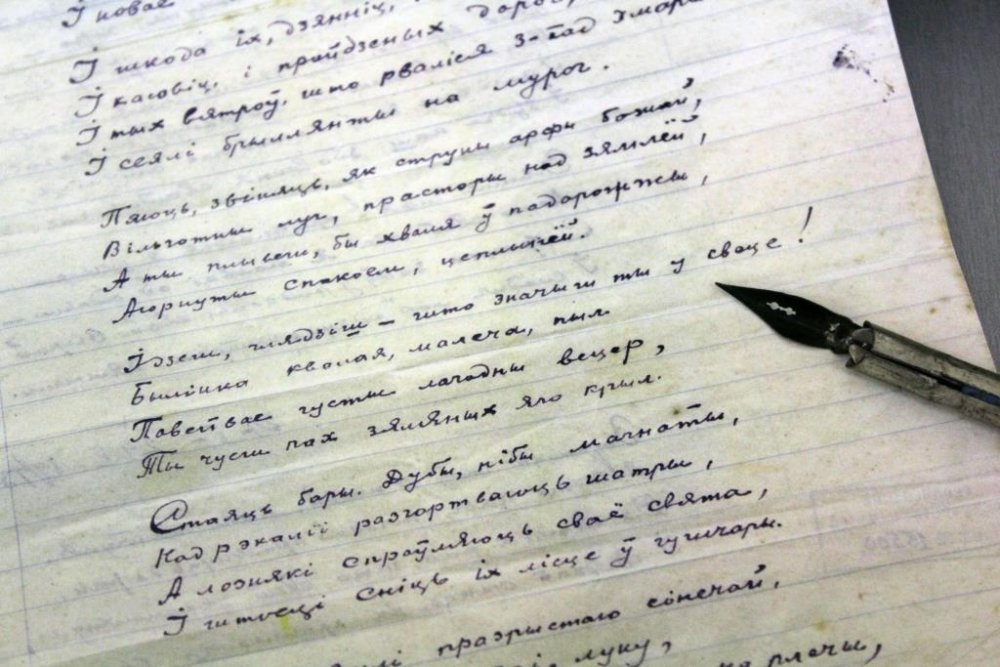 І новае
І шкода іх, дзянніц,
І касавіц, і пройдзеных дарог,
І тых вятроў, што рваліся з-пад хмар
І сеялі брыллянты на мурог.
Пяюць, звіняць, як струны арфы божай,
Вільготны луг, прасторы над зямлёй,
А ты плывеш, бы хваля ў падарожжы,
Агорнуты спакоем, цеплынёй.
Ідзеш, глядзіш – што значыш ты у свеце!
Былінка кволая, малеча, пыл
Павейвае густы лагодны вецер,
Ты чуеш пах зялёных яго крыл.
Стаяць бары. Дубы, нібы магнаты,
Над рэкамі разгортваюць шатры,
А лознякі спраўляюць сваё свята,
І штосці сніць іх лісце ў гушчары.
празрыстаю сонечнай,
луку,
плечы,